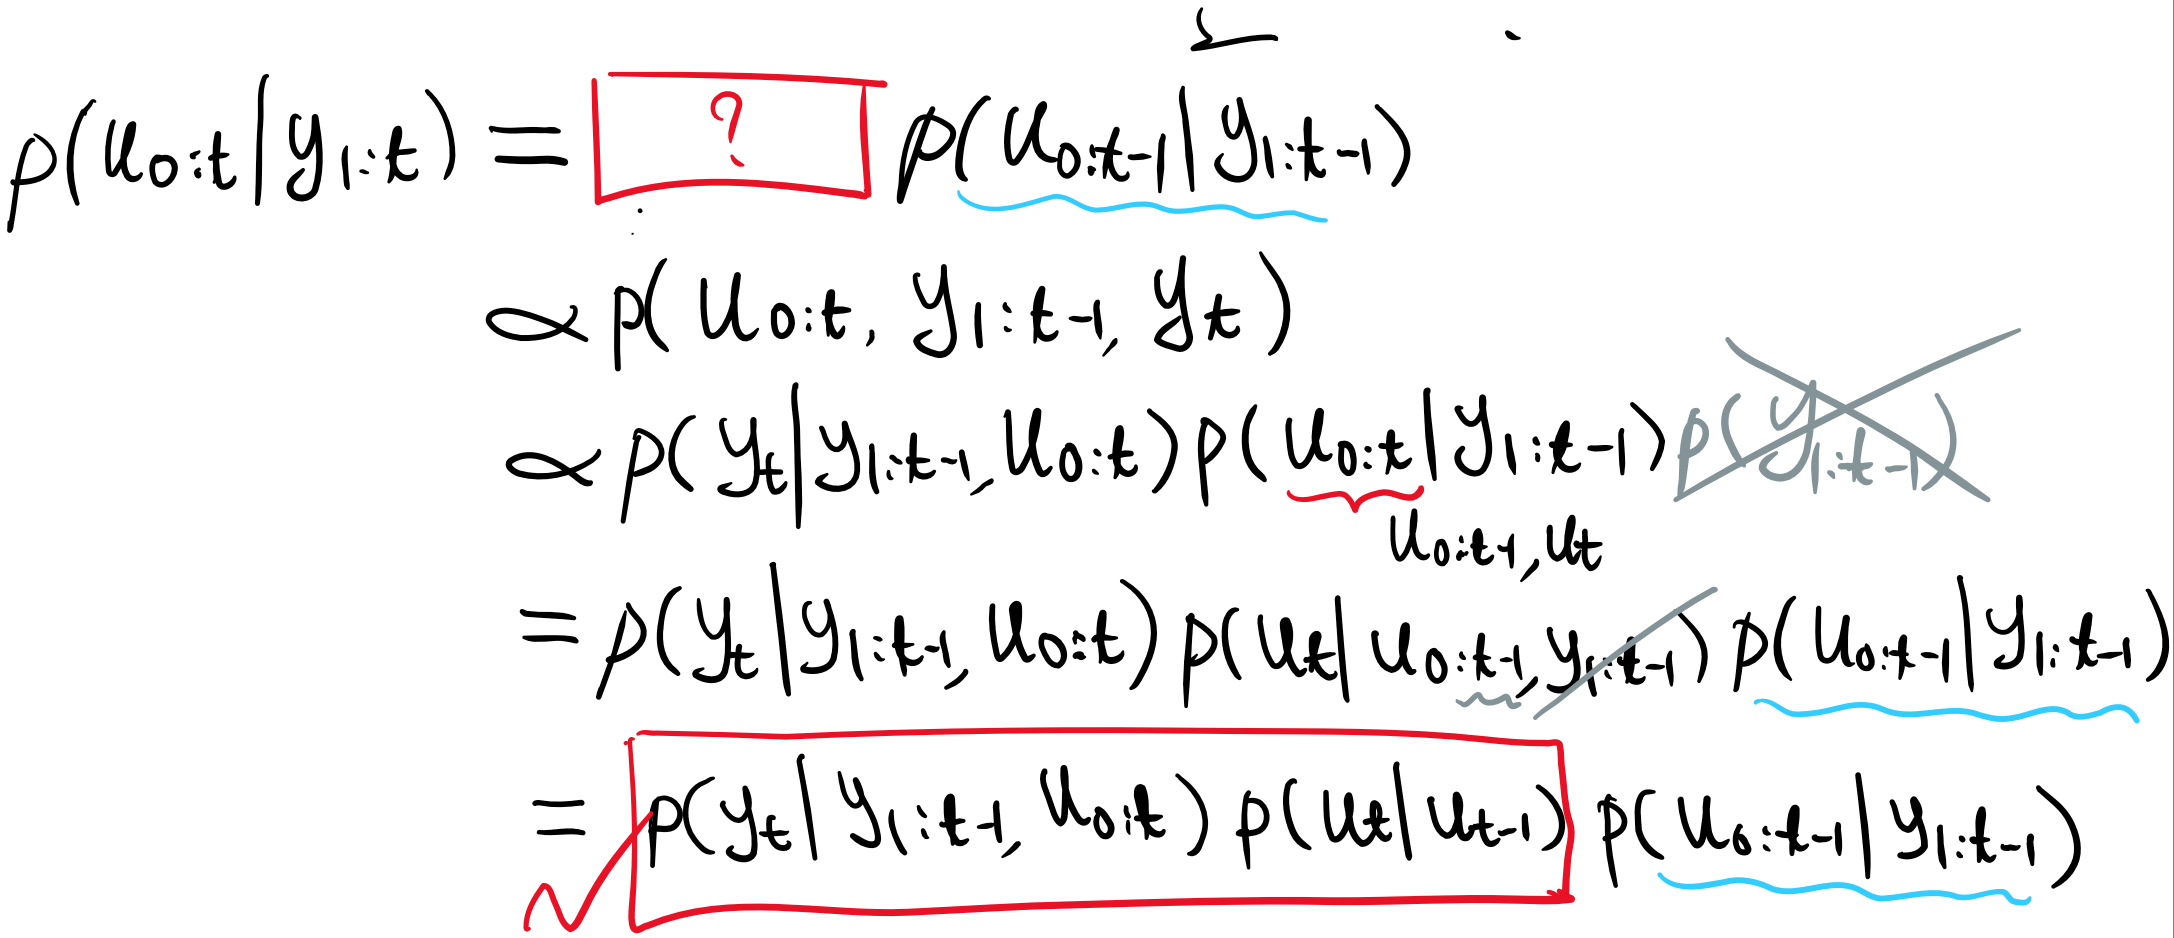 p(u₀:t | y₁:t) = ? p(u₀:t-1 | y₁:t-1)
∝ p(u₀:t, y₁:t-1, yt)
∝ p(yt | y₁:t-1, u₀:t) p(u₀:t | y₁:t-1) p(y₁:t-1)
u₀:t-1, ut
= p(yt | y₁:t-1, u₀:t) p(ut | u₀:t-1, y₁:t-1) p(u₀:t-1 | y₁:t-1)
= p(yt | y₁:t-1, u₀:t) p(ut | ut-1) p(u₀:t-1 | y₁:t-1)